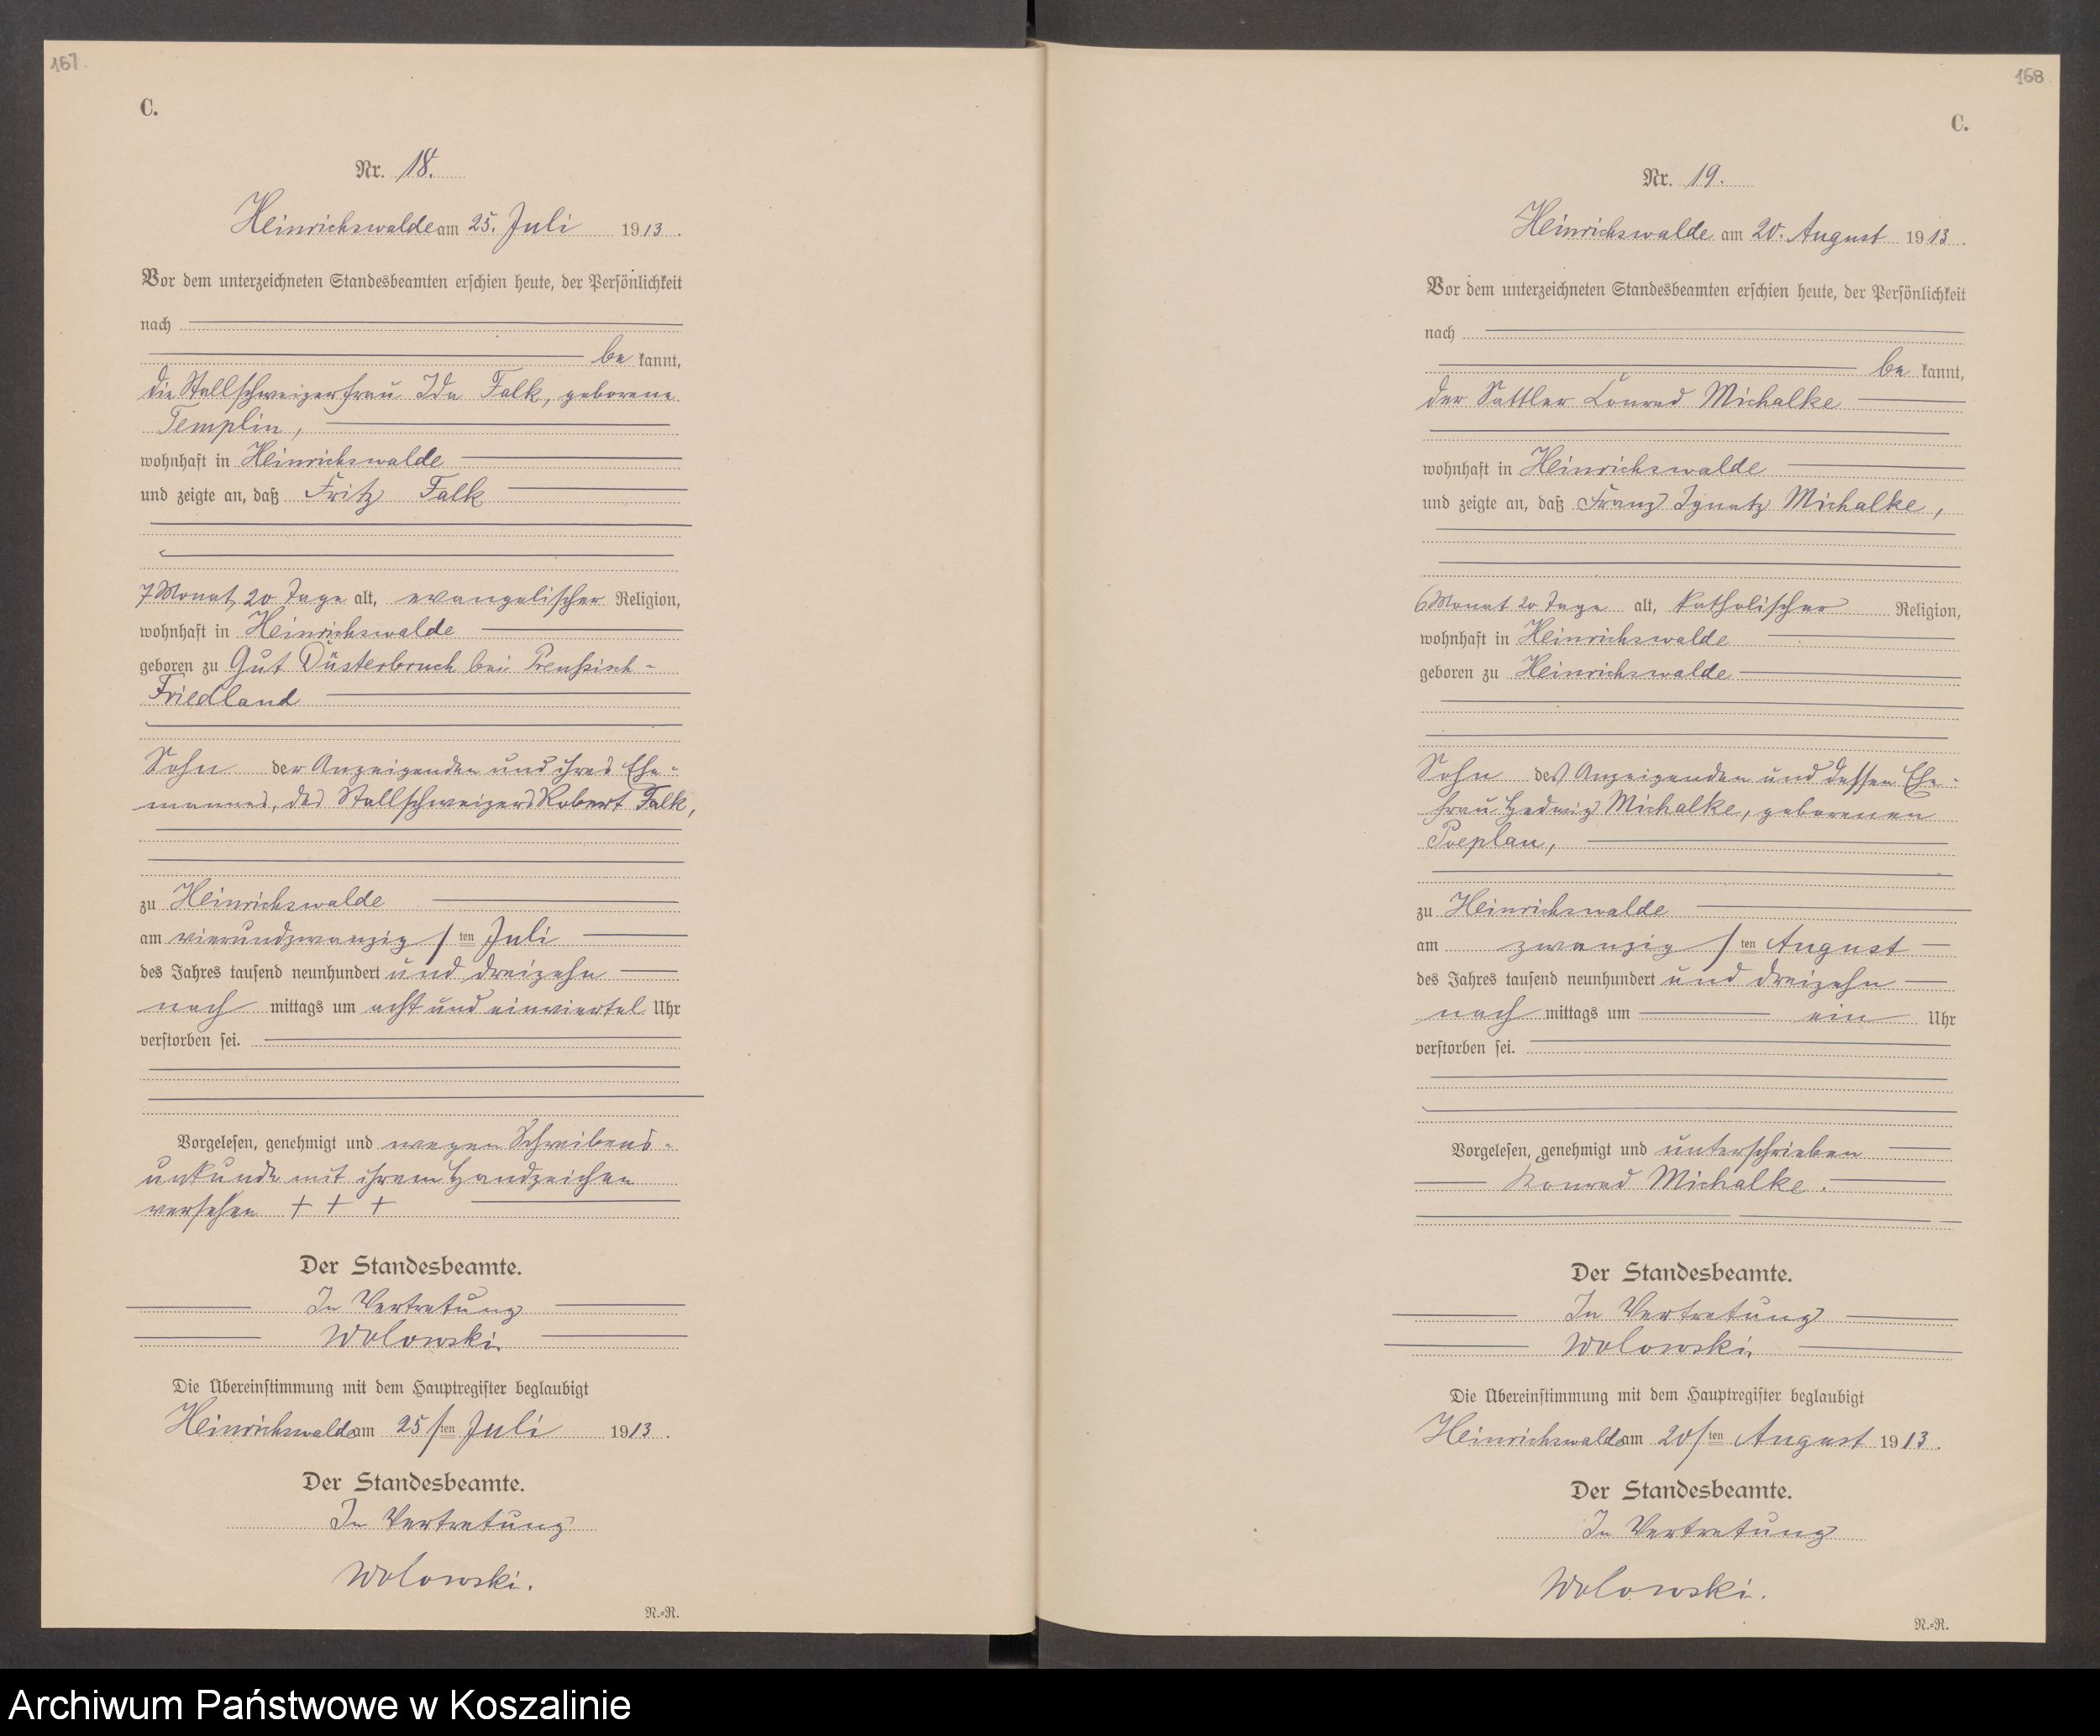 167.
C.
Nr. 18.
Heinrichswalde am 25. Juli 1913.
Vor dem unterzeichneten Standesbeamten erschien heute, der Persönlichkeit
nach
be kannt,
die Stallschweizerfrau Ida Falk, geborene
Templin,
wohnhaft in Heinrichswalde
und zeigte an, daß Fritz Falk
7 Monat, 20 Tage alt, evangelischer Religion,
wohnhaft in Heinrichswalde
geboren zu Gut Düsterbruch bei Preußisch-
Friedland
Sohn der Anzeigenden und ihres Ehe-
mannes, des Stallschweizers Robert Falk,
zu Heinrichswalde
am vierundzwanzig ten Juli
des Jahres tausend neunhundert und dreizehn
nach mittags um acht und einviertel Uhr
verstorben sei.
Vorgelesen, genehmigt und wegen Schreibens-
unkunde mit ihrem Handzeichen
versehen + + +
Der Standesbeamte.
In Vertretung
Wolowski.
Die Übereinstimmung mit dem Hauptregister beglaubigt
Heinrichswalde am 25 ten Juli 1913.
Der Standesbeamte.
In Vertretung
Wolowski.
N.=R.
168
C.
Nr. 19.
Heinrichswalde am 20. August 1913.
Vor dem unterzeichneten Standesbeamten erschien heute, der Persönlichkeit
nach
be kannt,
der Sattler Conrad Michalke
wohnhaft in Heinrichswalde
und zeigte an, daß Franz Ignatz Michalke,
6 Monat 20 Tage alt, katholischer Religion,
wohnhaft in Heinrichswalde
geboren zu Heinrichswalde
Sohn des Anzeigenden und dessen Ehe-
frau Hedwig Michalke, geborenen
Poeplau,
zu Heinrichswalde
am zwanzig ten August
des Jahres tausend neunhundert und dreizehn
nach mittags um ein Uhr
verstorben sei.
Vorgelesen, genehmigt und unterschrieben
Konrad Michalke.
Der Standesbeamte.
In Vertretung
Wolowski.
Die Übereinstimmung mit dem Hauptregister beglaubigt
Heinrichswalde am 20 ten August 1913.
Der Standesbeamte.
In Vertretung
Wolowski.
N.=R.
Archiwum Państwowe w Koszalinie